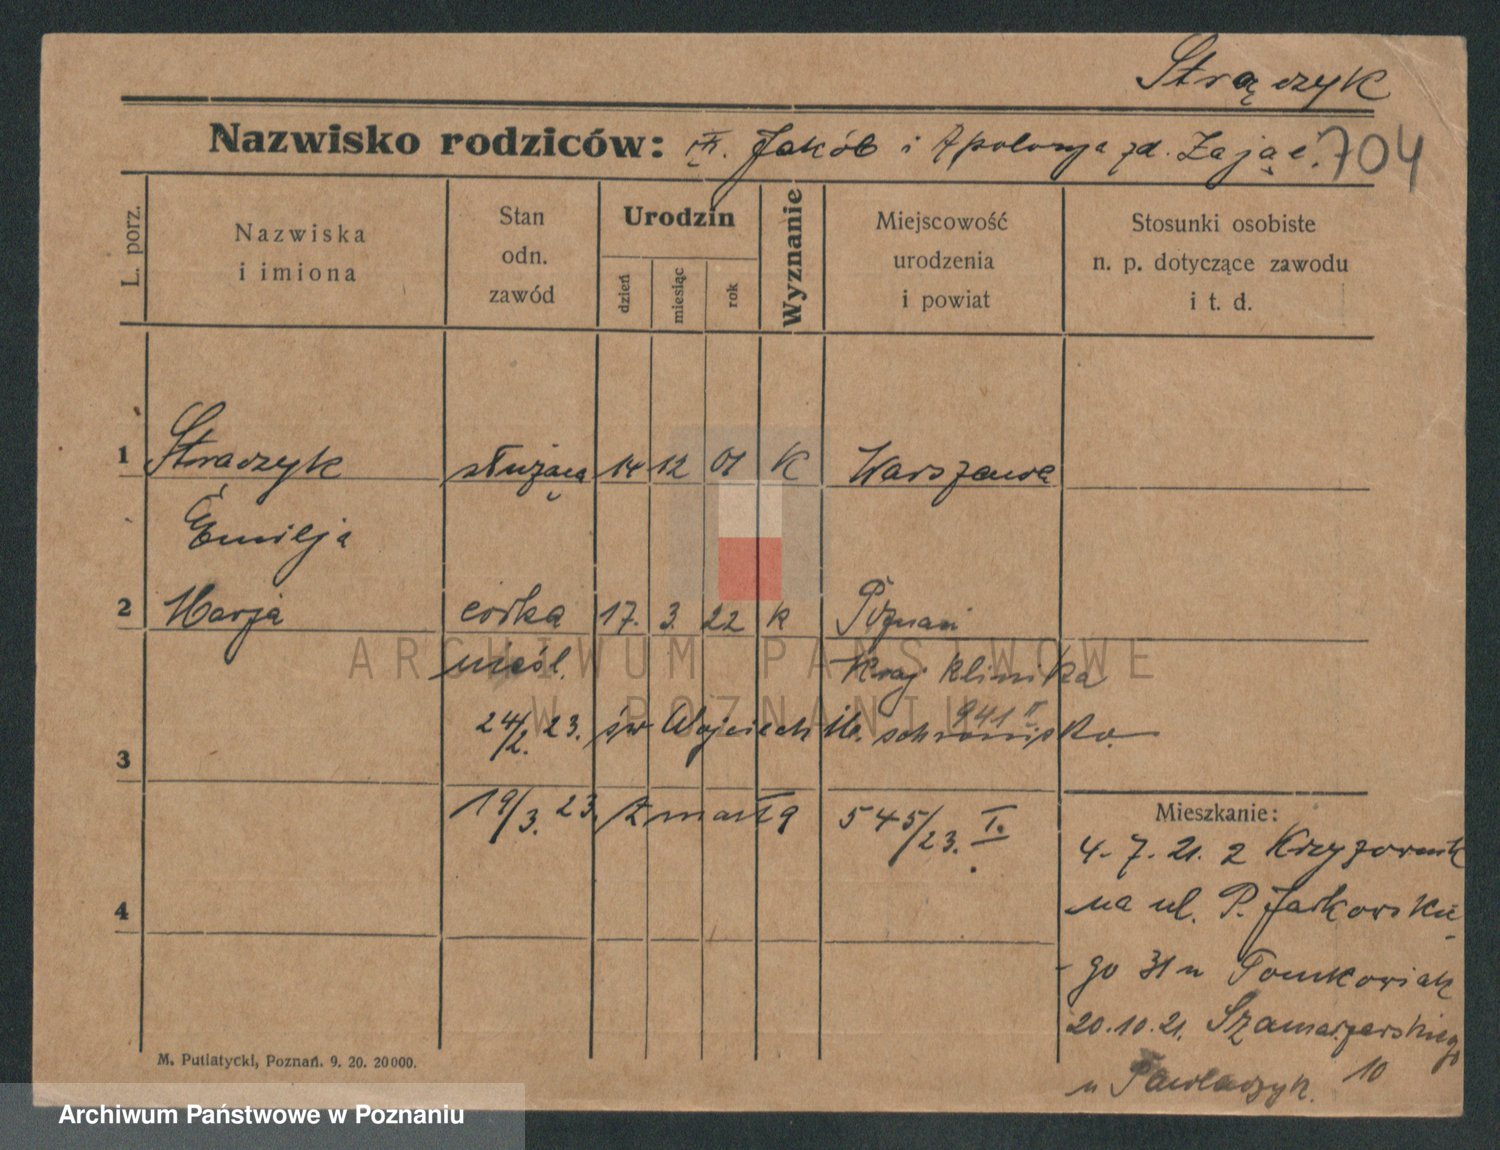 Strączyk
Nazwisko rodziców: Jakób i Apolonja zd. Zając. 704
L. porz.
Nazwiska i imiona
Stan odn. zawód
Urodzin
dzień
miesiąc
rok
Wyznanie
Miejscowość urodzenia i powiat
Stosunki osobiste n. p. dotyczące zawodu i t. d.
1 Straczyk służąca 14 12 01 K Warszawa
Emilja
2 Marja córka 17. 3. 22 k Poznań
nieśl. Kraj. klinika
941 II
24/2. 23. św Wojciech schronisko.
3
19/3. 23. zmarła 545/23. I.
Mieszkanie:
4. 7. 21. z Krzyżownik
4
na ul. P. Jackowskie
- go 31 u Tomkowiak
20.10.21. Szamarzewskiego
10
u Pawlaczyk.
M. Putiatycki, Poznań. 9. 20. 20000.
ARCHIWUM PAŃSTWOWE
W POZNANIU
Archiwum Państwowe w Poznaniu